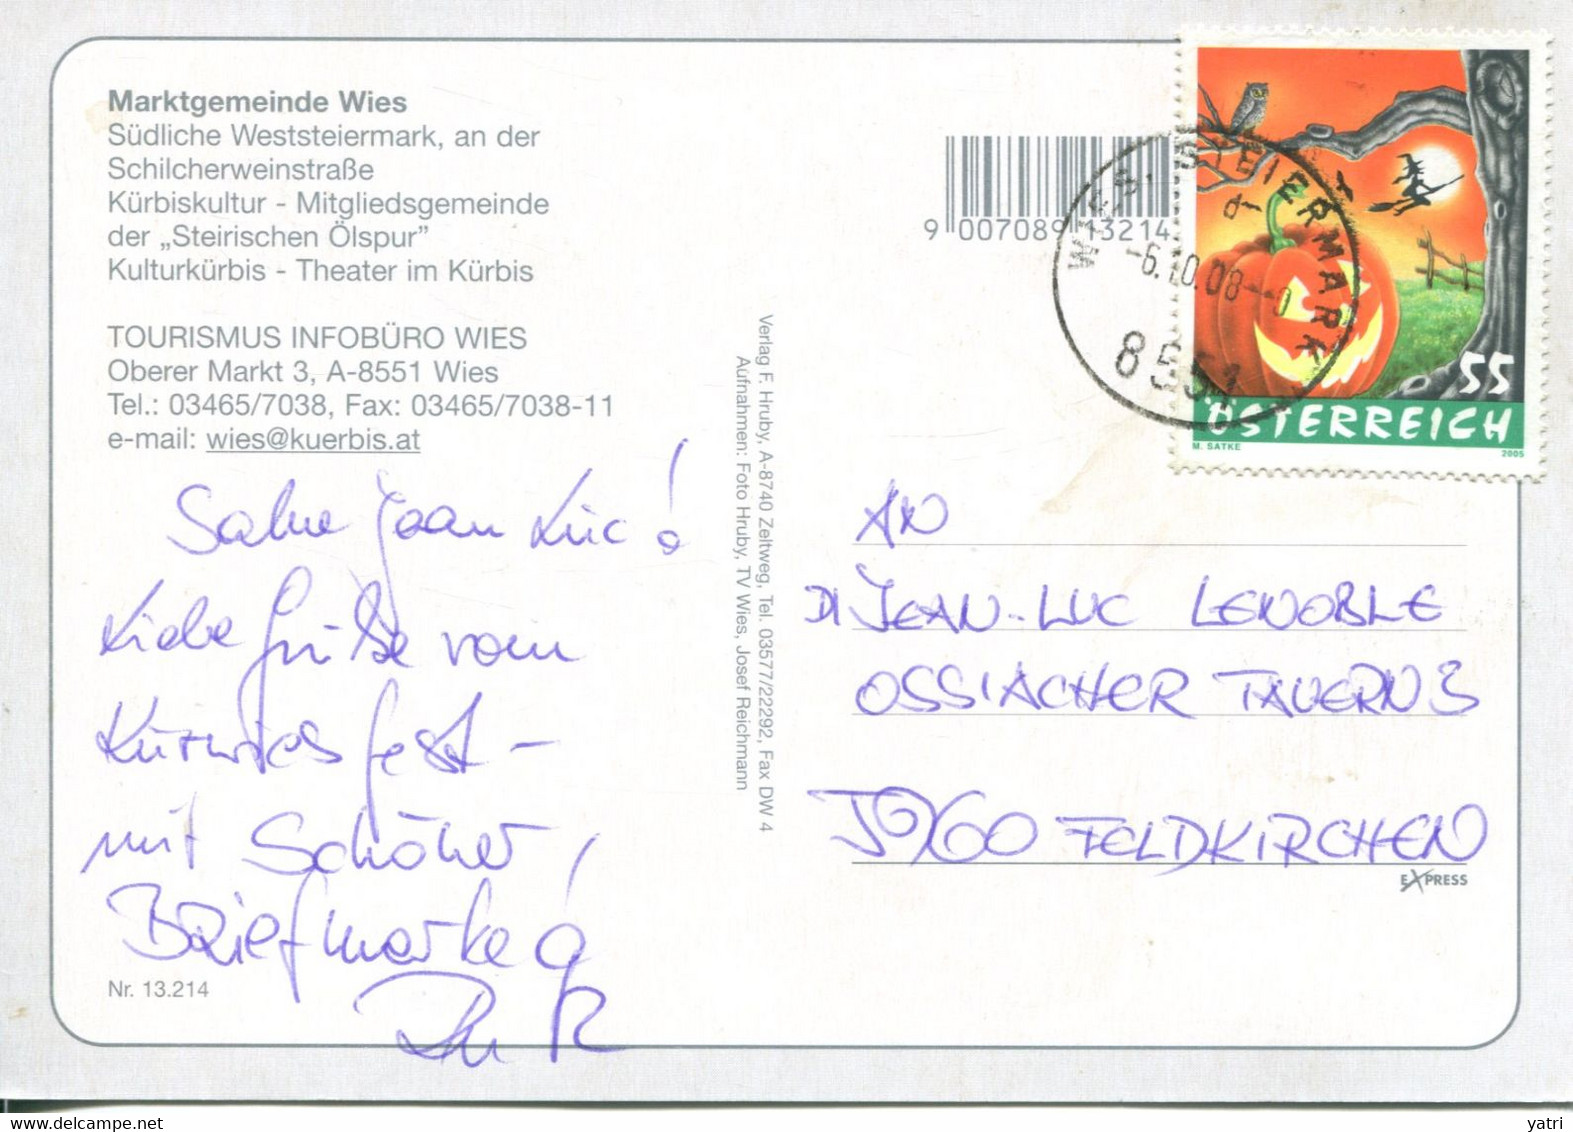 Marktgemeinde Wies
Südliche Weststeiermark, an der
Schilcherweinstraße
Kürbiskultur - Mitgliedsgemeinde
der „Steirischen Ölspur"
Kulturkürbis - Theater im Kürbis
TOURISMUS INFOBÜRO WIES
Oberer Markt 3, A-8551 Wies
Tel.: 03465/7038, Fax: 03465/7038-11
e-mail: wies@kuerbis.at
Salue Jean Luc!
Liebe Grüße vom
fest -
mit Schöner
Briefmarke
Nr. 13.214
Verlag F. Hruby, A-8740 Zeltweg, Tel. 03577/22292, Fax DW 4
Aufnahmen: Foto Hruby, TV Wies, Josef Reichmann
9 007089 13214
WIES, STEIERMARK
-6.10.08
8551
55
ÖSTERREICH
M. SATKE 2005
AN
DI JEAN-LUC LENOBLE
OSSIACHER TAUERN 3
FELDKIRCHEN
EXPRESS